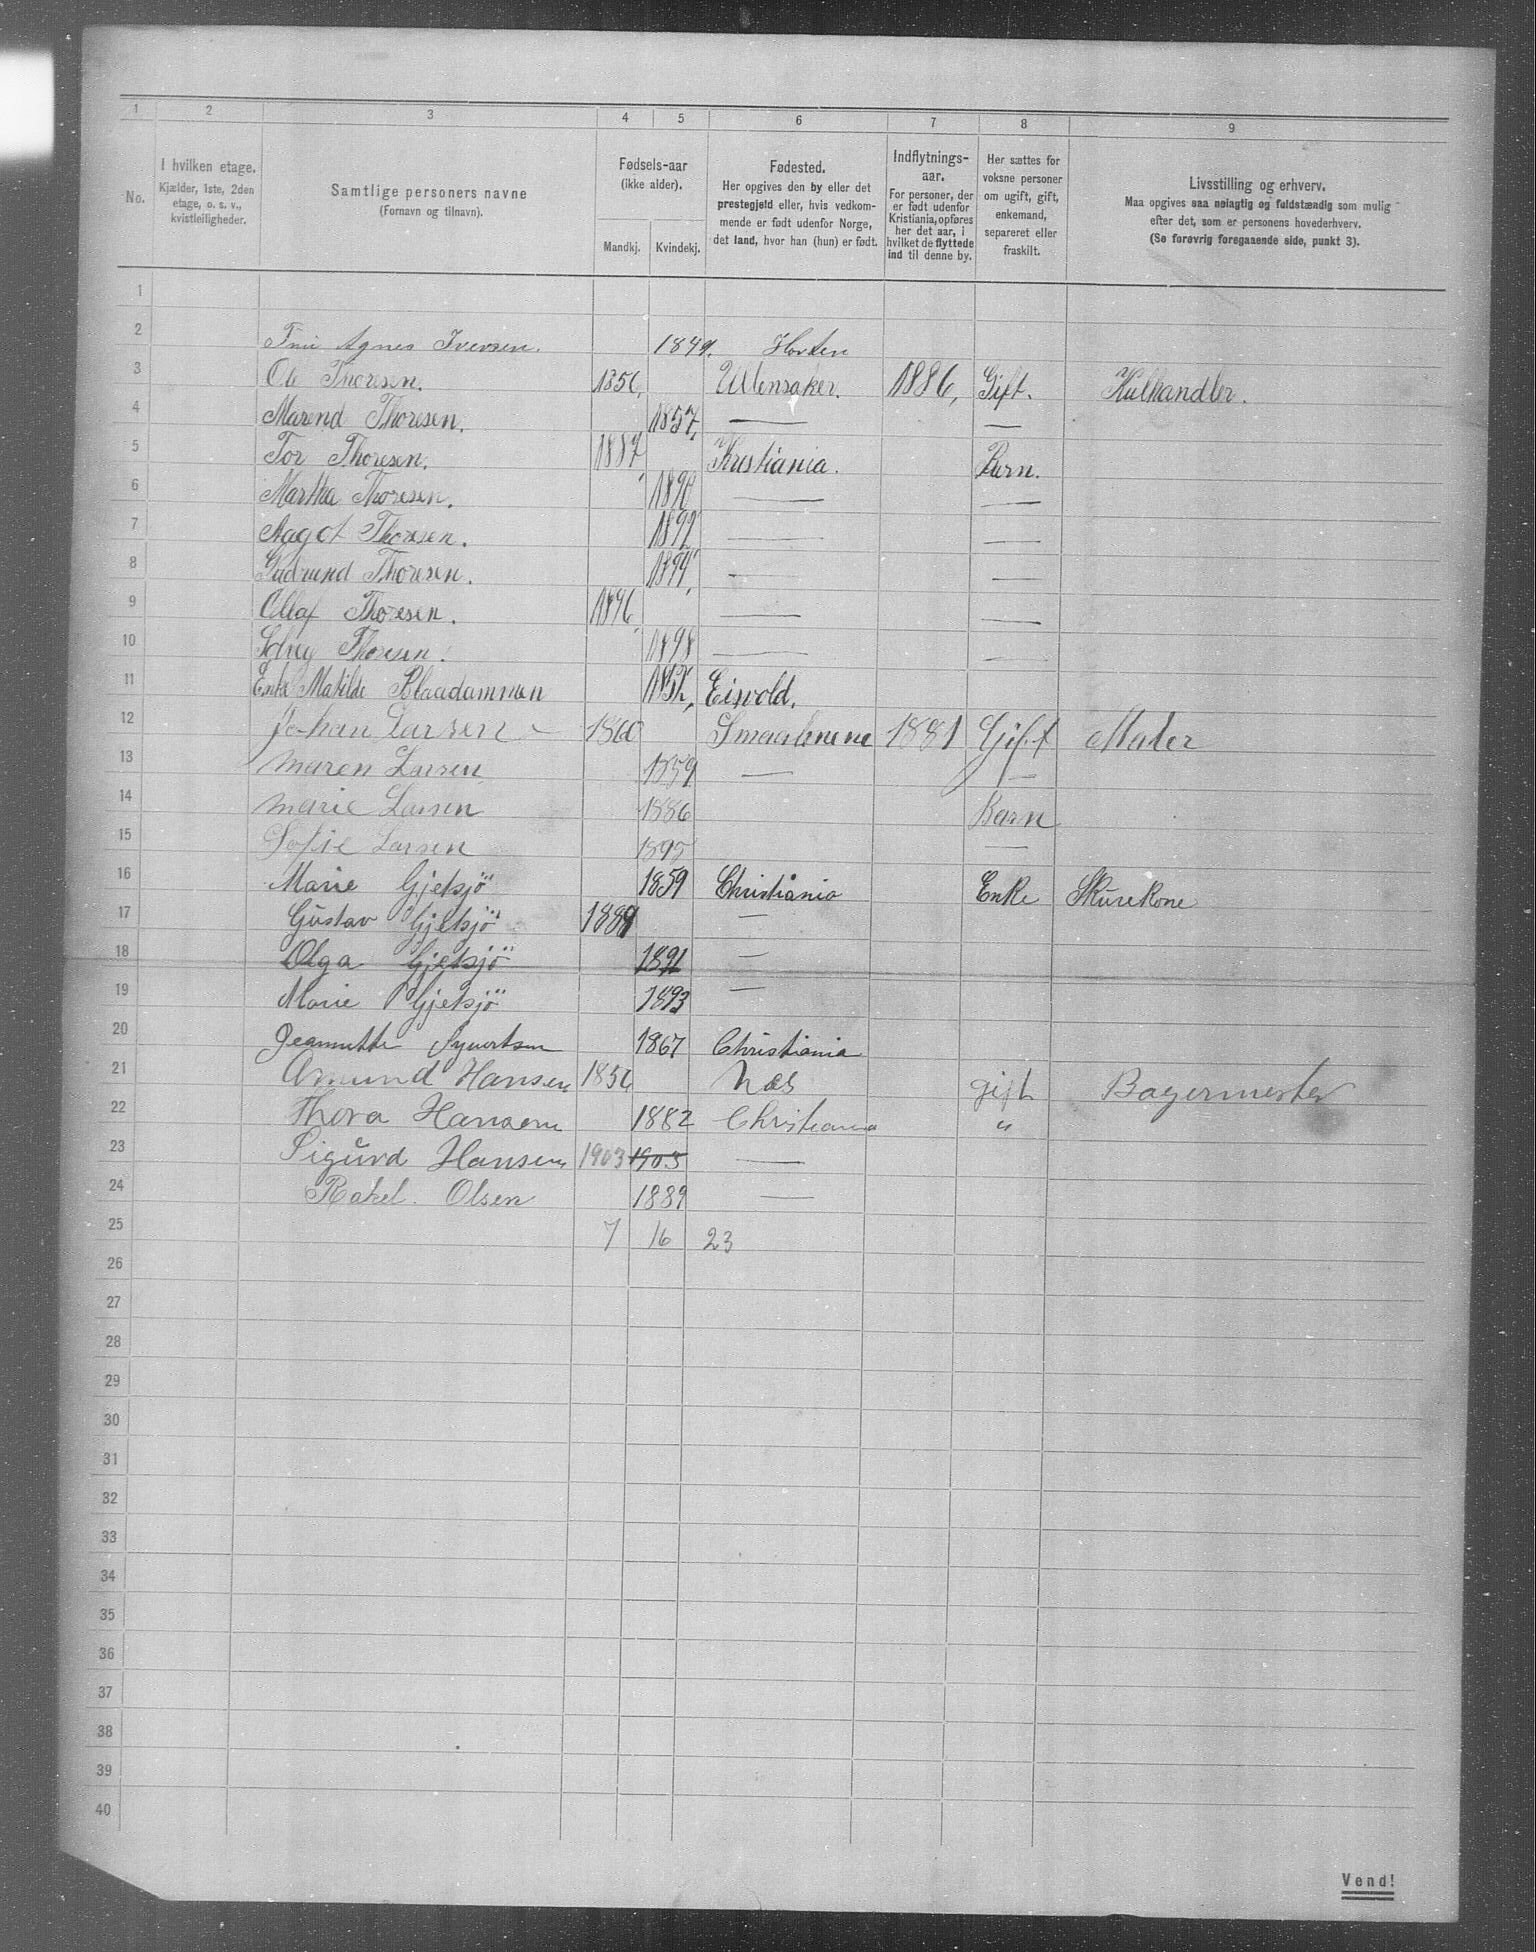 1 2 3 4 5 6 7 8 9
No.
I hvilken etage.
Kjælder, 1ste, 2den
etage, o. s. v.,
kvistleiligheder.
Samtlige personers navne
(Fornavn og tilnavn).
Fødsels-aar
(ikke alder).
Mandkj. Kvindekj.
Fødested.
Her opgives den by eller det
prestegjeld eller, hvis vedkom-
mende er født udenfor Norge,
det land, hvor han (hun) er født.
Indflytnings-
aar.
For personer, der
er født udenfor
Kristiania, opføres
her det aar, i
hvilket de flyttede
ind til denne by.
Her sættes for
voksne personer
om ugift, gift,
enkemand,
separeret eller
fraskilt.
Livsstilling og erhverv.
Maa opgives saa nøiagtig og fuldstændig som mulig
efter det, som er personens hovederhverv.
(Se forøvrig foregaaende side, punkt 3).
1
2 Agnes Iversen. 1849. Horten
3 Ole Thoresen. 1856, Ullensaker. 1886, Gift. Kulhandler.
4 Marend Thoresen. 1857, — —
5 Tor Thoresen. 1887 Kristiania. Barn.
6 Martha Thoresen. 1890 — —
7 Aagot Thoresen. 1892 — —
8 Gudrund Thoresen. 1894, — —
9 Ollaf Thoresen. 1896 — —
10 Solvey Thoresen. 1898 — —
11 Enke Matilde Blaadammen Eisvold.
12 Johan Larsen 1860 Smaalenene 1881 Gift Maler
13 Maren Larsen 1859 — —
14 Marie Larsen 1886 Barn
15 Sofie Larsen 1895 —
16 Marie Gjetsjö 1859 Christiania Enke Skurekone
17 Gustav Gjetsjö 1889 —
18 Olga Gjetsjö 1891 —
19 Marie Gjetsjö 1893 —
20 Jeannette Syvertsen 1867 Christiania
21 Amund Hansen 1856 Næs gift Bagermester
22 Thora Hansen 1882 Christiania "
23 Sigurd Hansen 1903 1903 —
24 Rakel. Olsen 1889 —
25 7 16 23
26
27
28
29
30
31
32
33
34
35
36
37
38
39
40
Vend!